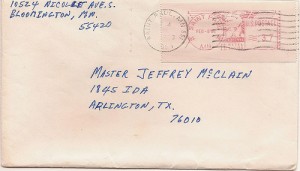 10524 NICOLLET AVE. S.
BLOOMINGTON, MN.
55420
MASTER JEFFREY MCCLAIN
1845 IDA
ARLINGTON, TX.
76010